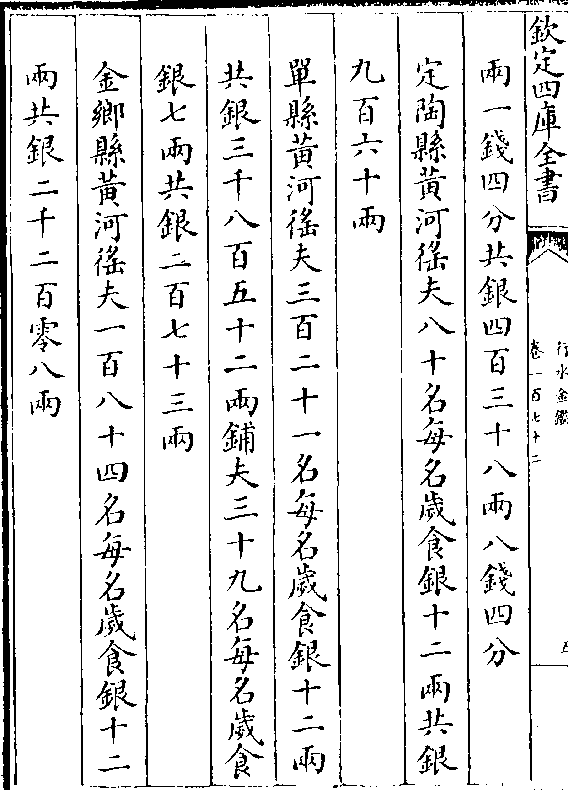 欽定四庫全書
行水金鑑
卷一百七十二
兩一錢四分共銀四百三十八兩八錢四分
定陶縣黃河徭夫八十名每名歲食銀十二兩共銀
九百六十兩
單縣黃河徭夫三百二十一名每名歲食銀十二兩
共銀三千八百五十二兩鋪夫三十九名每名歲食
銀七兩共銀二百七十三兩
金鄉縣黃河徭夫一百八十四名每名歲食銀十二
兩共銀二千二百零八兩